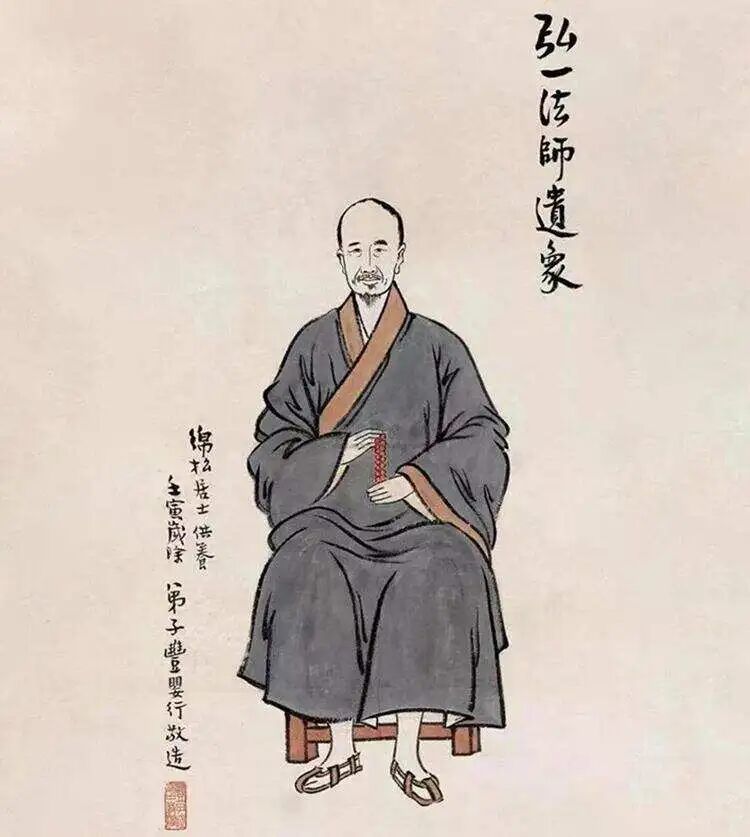 弘一法師遺象
綿松居士供養
壬寅歲除 弟子豐嬰行敬造